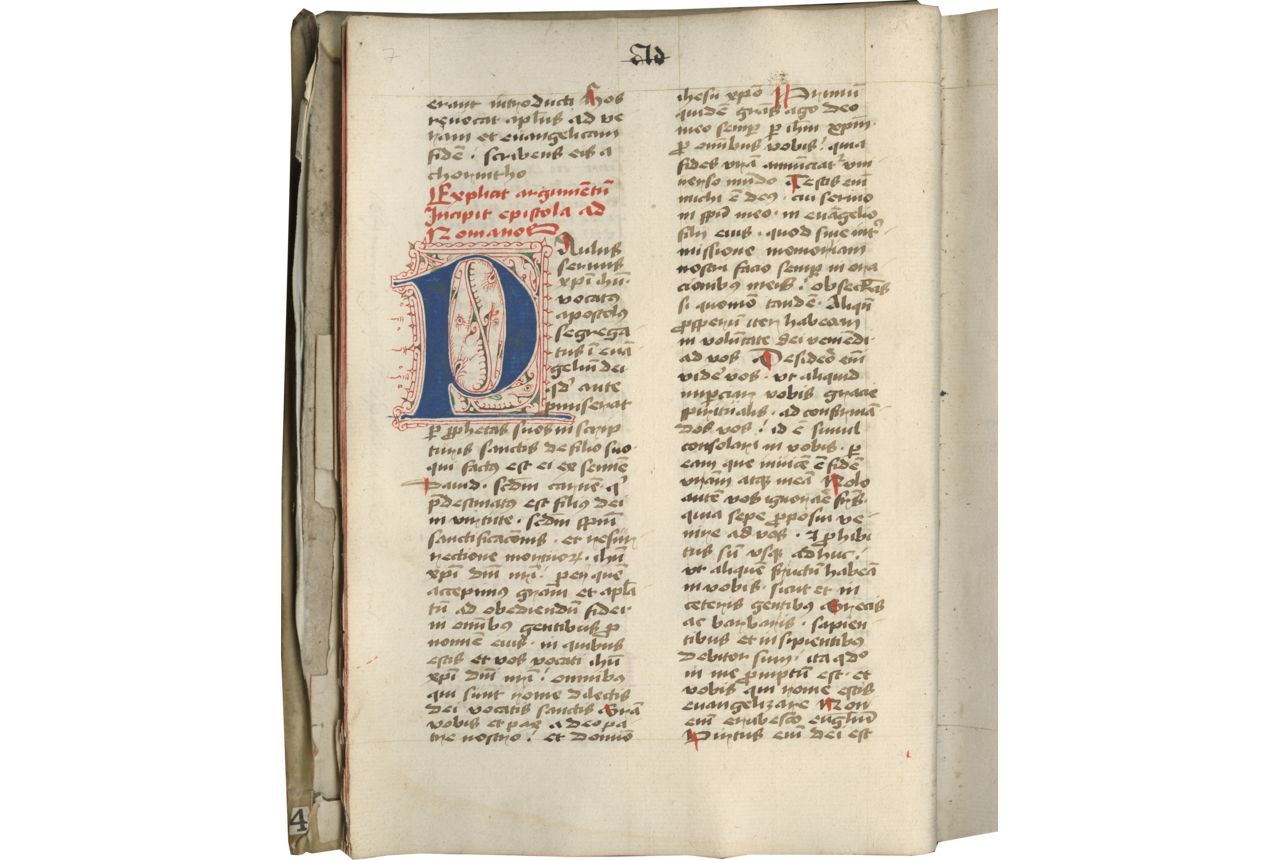 Ad
erant introducti Hos
reuocat apl̅us ad ve
ram et euangelicam
fidē · scribens eis a
chorintho
Explicit argumentū
Incipit epistola ad
Romanos
PAulus
seruus
xp̅i ih̅u ·
vocatꝰ
apostolꝰ
segrega
tus ī euā
geliū dei
qd̕ ante
promiserat
ꝑ ꝓphetas suos in scrip
turis sanctis de filio suo
qui factꝰ est ei ex semīe
Dauid · sc̅dm carnē · q'
p̅destinatꝰ est filiꝰ dei
in v̓tute · sc̅dm sp̅m̅
sanctificac̅onis · et resur
rectione mortuoꝝ · ih̅u
xp̅i dn̅i nr̅i · per quē
accepimꝰ gr̅am et apl̅a
tū ad obediendū fidei
in om̅ibꝰ gentibus ꝓ
nomīe eius · in quibus
estis et vos vocati ih̅u
xp̅i dn̅i nr̅i : omnibꝰ
qui sunt rome dilectis
dei vocatis sanctis Gr̅a
vobis et pax a deo pa
tre nostro : et domīo
ihesu xp̅o Primū
quidē gr̅as ago deo
meo semꝑ ꝑ ih̅m xp̅m ·
ꝓ om̅ibus vobis : quia
fides vr̅a annūciat᷑ vni
uerso mūdo Testis em̅
michi ē deꝰ · cui seruio
in sp̅u meo · in euāgelio
filij eius · quod sine int̕
missione memoriam
vestri facio semꝑ in ora
cionibꝰ meis : obsecrās
si quomō tandē · Aliqn̅
ꝓsperū iter habeam
in volūtate dei veniendi
ad vos Desidero em̅
vide᷑ vos · vt aliquid
imꝑciar vobis gracie
spiritualis · ad confirmā
dos vos : id ē simul
consolari in vobis · ꝑ
eam que inuicē ē fidē
vr̅am atqꝫ meā Nolo
autē vos ignorar̅e fr̅s ·
quia sepe ꝓposui ve
nire ad vos · Et ꝓhibi
tus sū vsqꝫ adhuc :
vt aliquē fructū habeā
in vobis · sicut et in
ceteris gentibꝰ Grecis
ac barbaris · sapien
tibus et insipientibꝰ
debitor sum · ita qd̕
in me ꝓmptū est · et
vobis qui rome estis
euangelizare Non
em̅ erubesco eu̅gliū
Virtus em̅ dei est
4